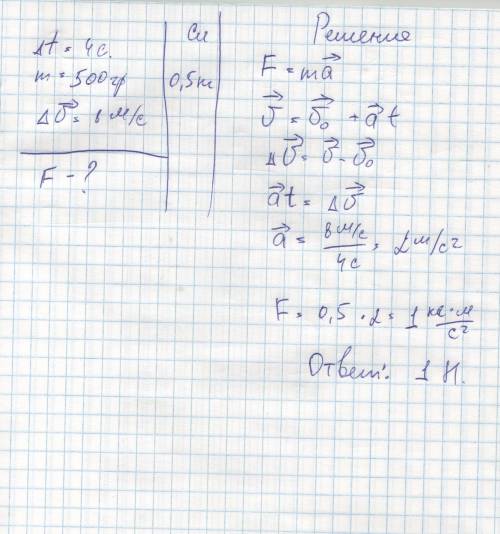 Δt = 4с.
m = 500гр
Δv⃗ = 8 м/с
F - ?
Си
0,5кг
Решение
F = ma⃗
v⃗ = v⃗₀ + a⃗ t
Δv⃗ = v⃗ - v⃗₀
a⃗ t = Δv⃗
a⃗ = 8 м/с / 4с = 2 м/с²
F = 0,5 · 2 = 1 кг·м / с²
Ответ: 1 Н.